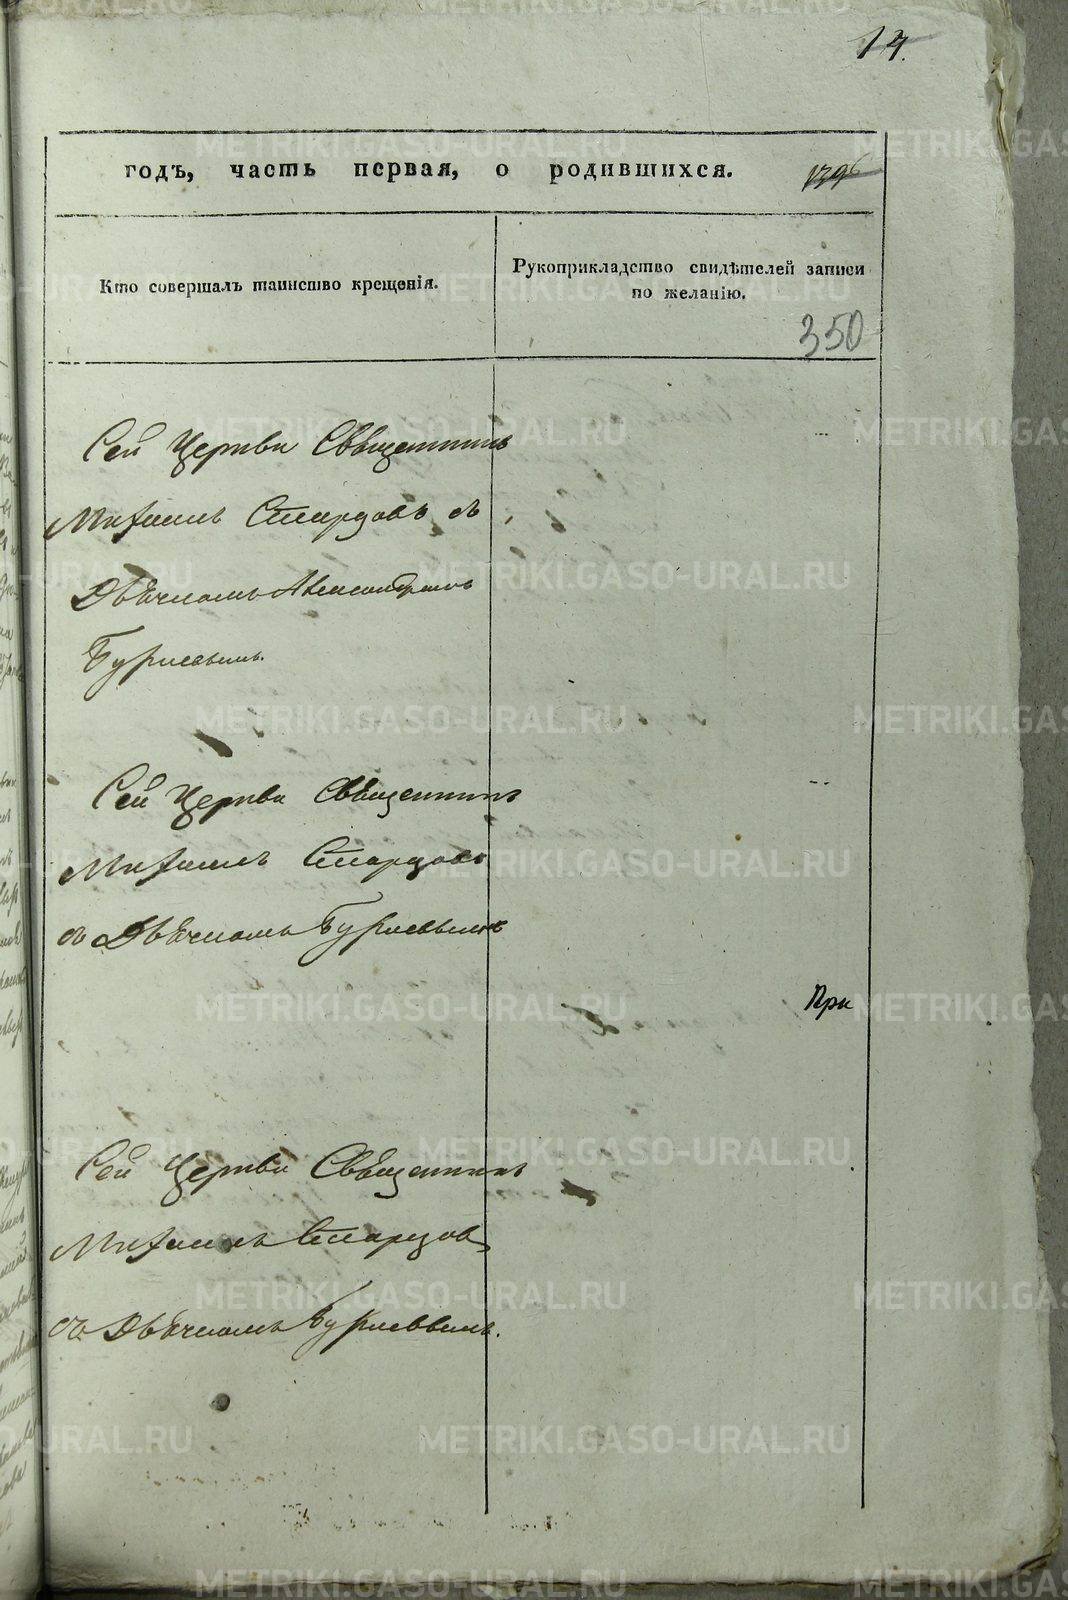 14.
годъ, часть первая, о родившихся. 1396
Кто совершалъ таинство крещенія.
Рукоприкладство свидѣтелей записи
по желанію.
350
Сей Церкви Священникъ
Михаилъ Старцовъ съ
Дьячкомъ Александромъ
Бурцевымъ.
Сей Церкви Священникъ
Михаилъ Старцовъ
съ Дьячкомъ Бурцевымъ
При
Сей Церкви Священникъ
Михаилъ Старцовъ
съ Дьячкомъ Бурцевымъ.
METRIKI.GASO-URAL.RU